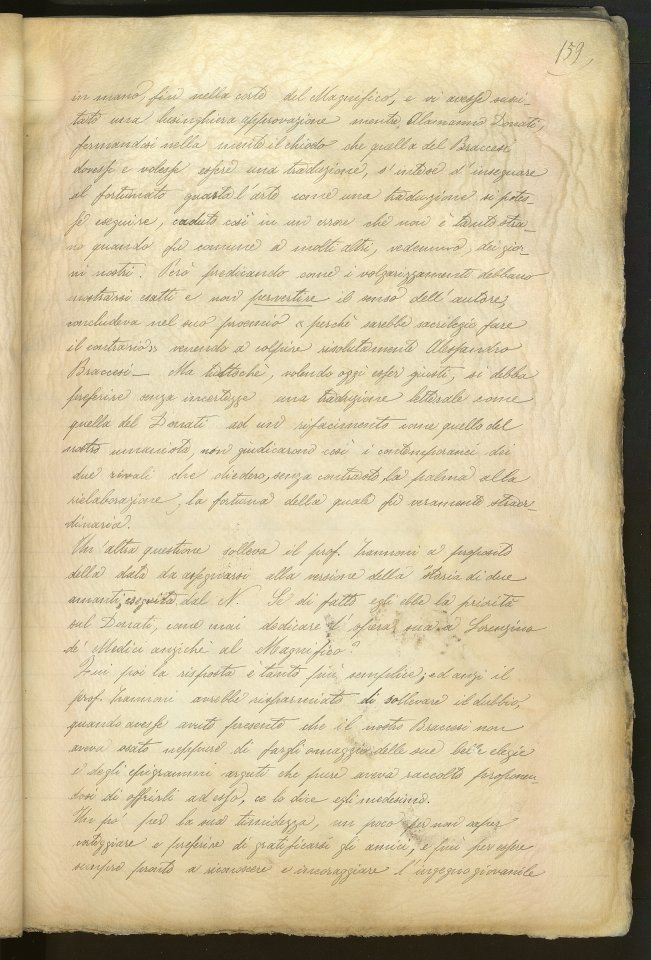 159,
in mano, fin nella corte del Magnifico, e vi avesse susci-
tato una lusinghiera approvazione mentre Alamanno Donati,
fermandosi nella mente il chiodo che quella del Braccesi
dovesse e volesse essere una traduzione, s'intese d'insegnare
al fortunato l'arte come una traduzione si potes-
se eseguire, caduto così in un errore che non è tanto stra-
no quando fu comune a molti altri, vedemmo, dei gior-
ni nostri. Però predicando come i volgarizzamenti debbano
mostrarsi esatti e non pervertire il senso dell'autore,
concludeva nel suo proemio « perchè sarebbe sacrilegio fare
il contrario» venendo a colpire risolutamente Alessandro
Braccesi_ Ma tuttochè, volendo oggi esser giusti, si debba
preferire senza incertezze una traduzione letterale come
quella del Donati ad un rifacimento come quello del
nostro umanista, non giudicarono così i contemporanei dei
due rivali che diedero, senza contrasto, la palma alla
rielaborazione, la fortuna della quale fu veramente straor-
dinaria.
Un'altra questione solleva il prof. Zannoni a proposito
della data da assegnarsi alla versione della "storia di due
amanti, eseguita dal N. Se di fatto egli ebbe la priorità
sul Donati, come mai dedicare l'opera sua a Lorenzino
de' Medici anzichè al Magnifico?
Qui poi la risposta è tanto più semplice; ed anzi il
prof. Zannoni avrebbe risparmiato di sollevare il dubbio,
quando avesse avuto presente che il nostro Braccesi non
aveva osato neppure di fargli omaggio delle sue belle elegie
e degli epigrammi arguti che pure aveva raccolto proponen-
dosi di offrirli ad esso, ce lo dice egli medesimo.
Un po' per la sua timidezza, un poco per non saper
corteggiare e preferire di gratificarsi gli amici, e più per esser
sempre pronto a riconoscere e incoraggiare l'ingegno giovanile